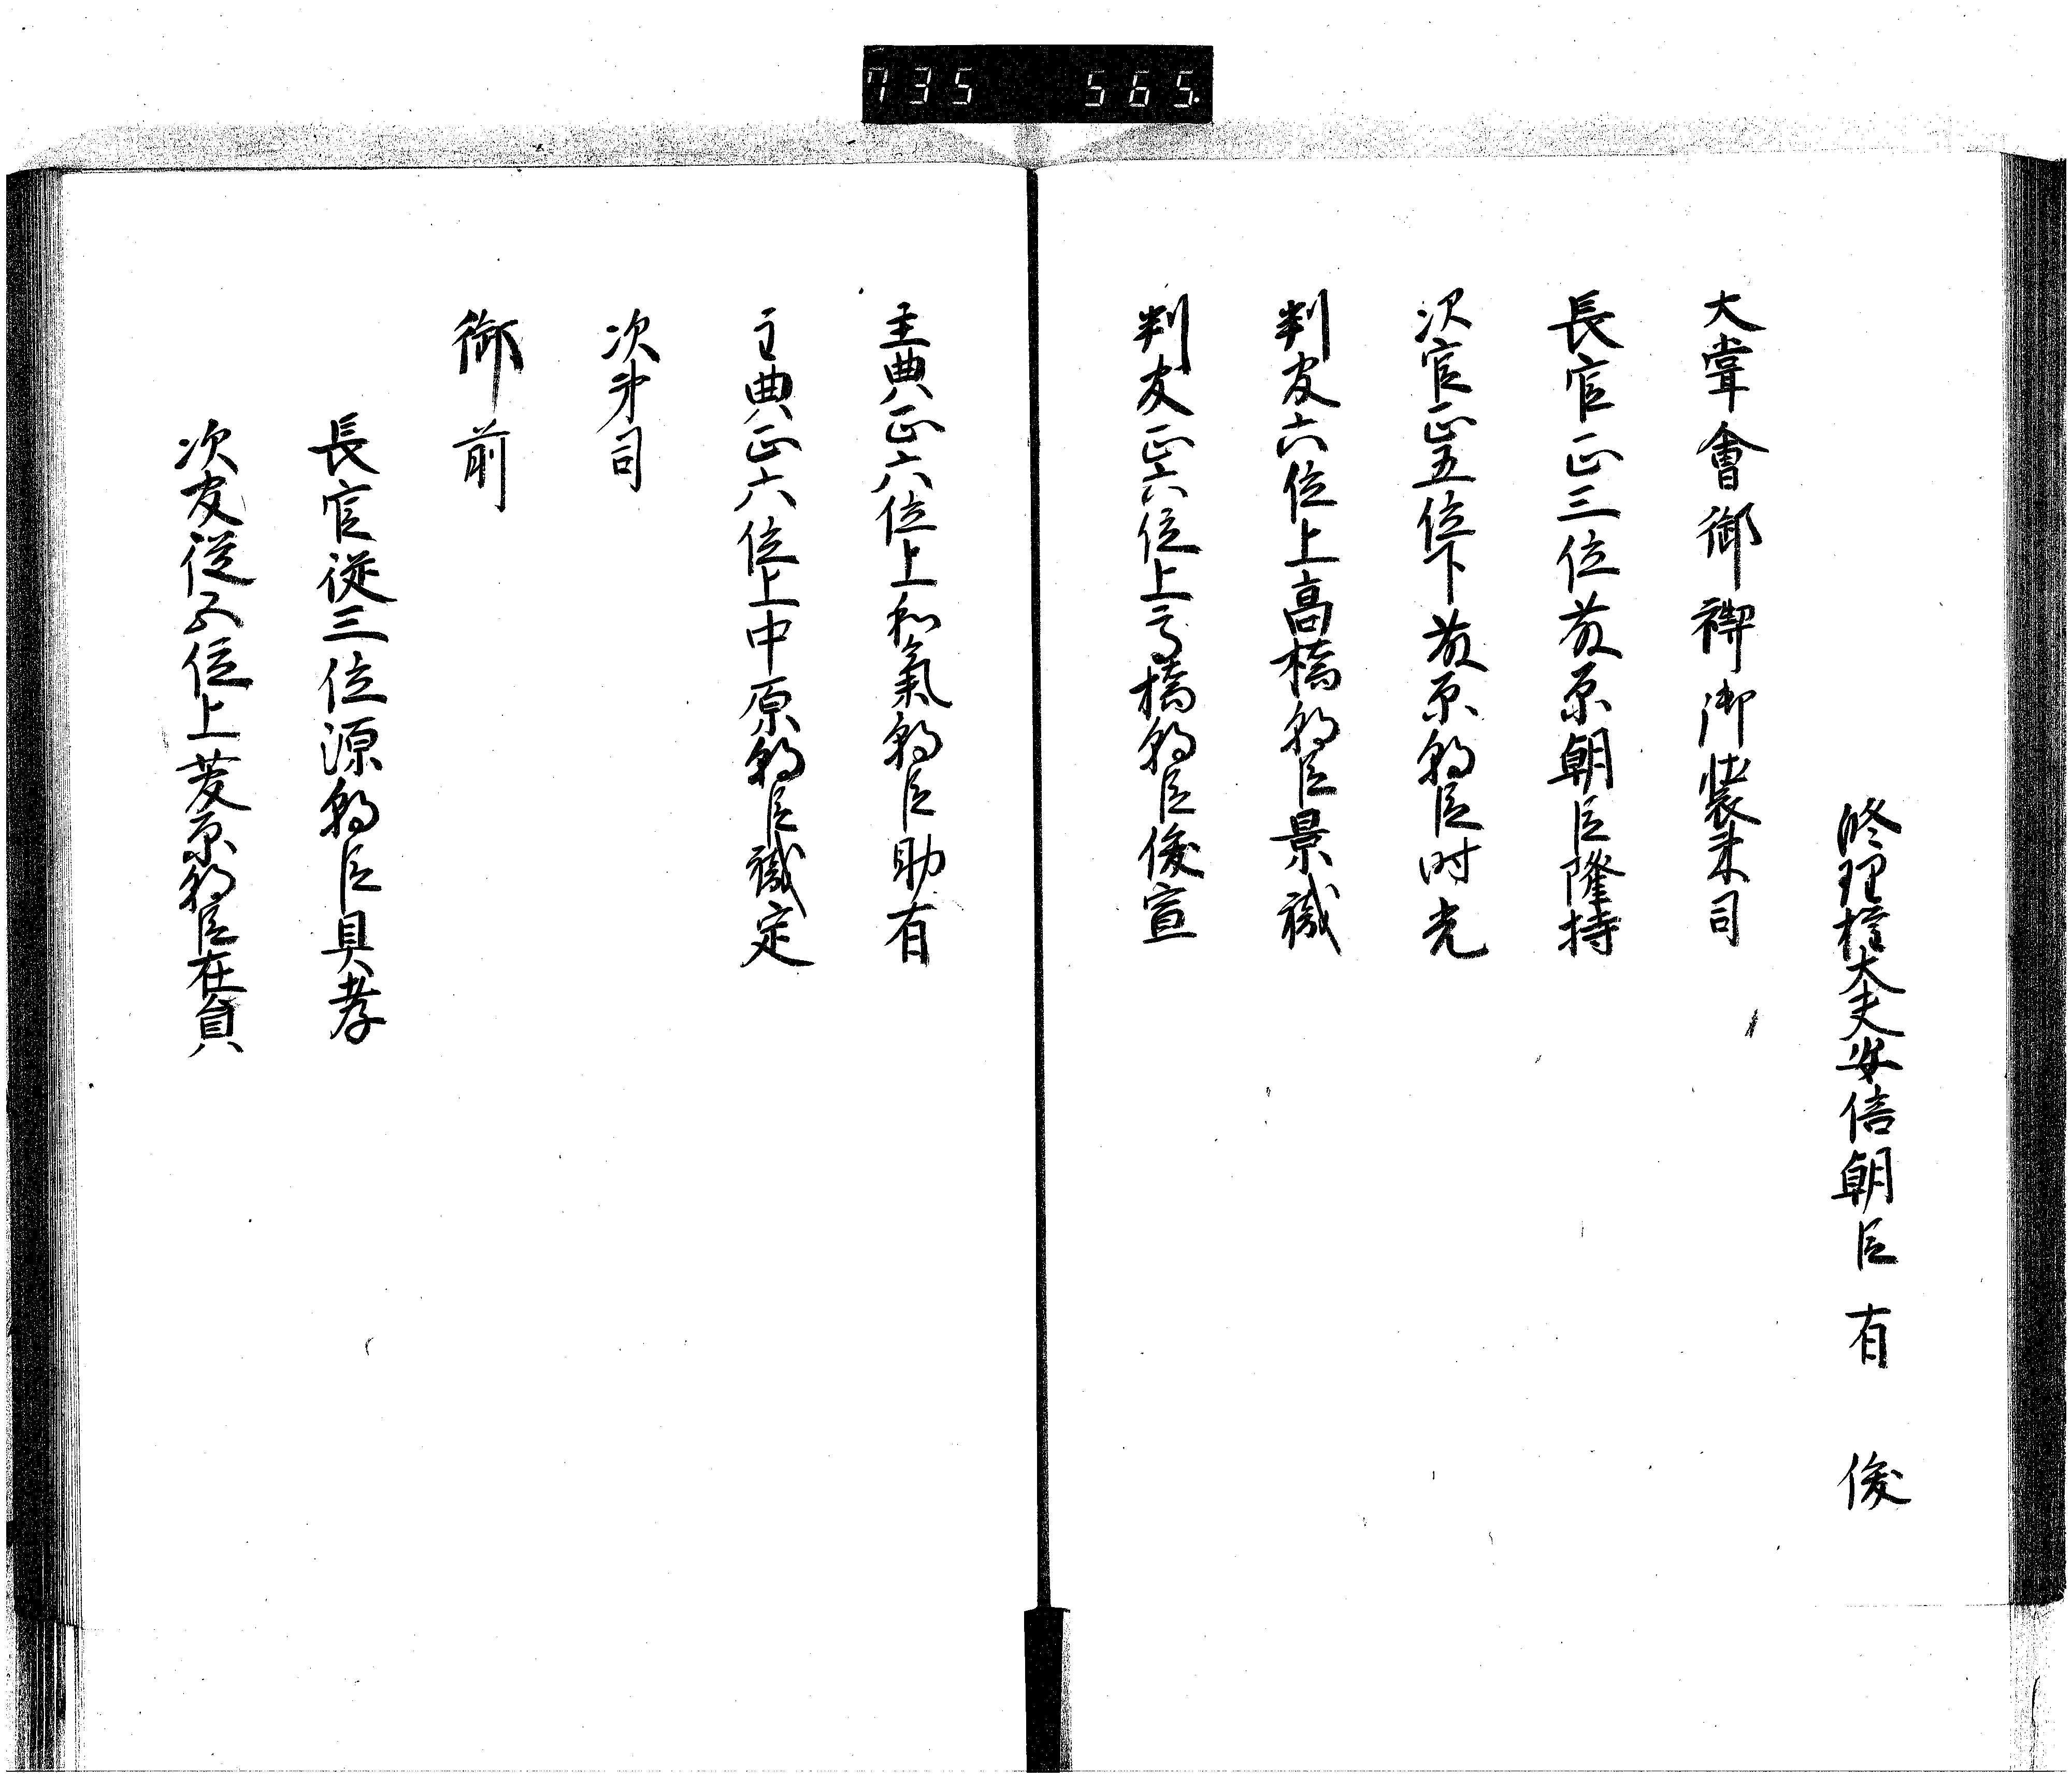 735 565.
修理権大夫安倍朝臣有俊
大嘗會御禊御装束司
長官正三位藤原朝臣隆持
次官正五位下藤原朝臣时光
判官六位上高橋朝臣景職
判官正六位上高橋朝臣俊宣
主典正六位上和氣朝臣助有
主典正六位上中原朝臣職定
次第司
御前
長官従三位源朝臣具孝
次官従五位上菅原朝臣在員